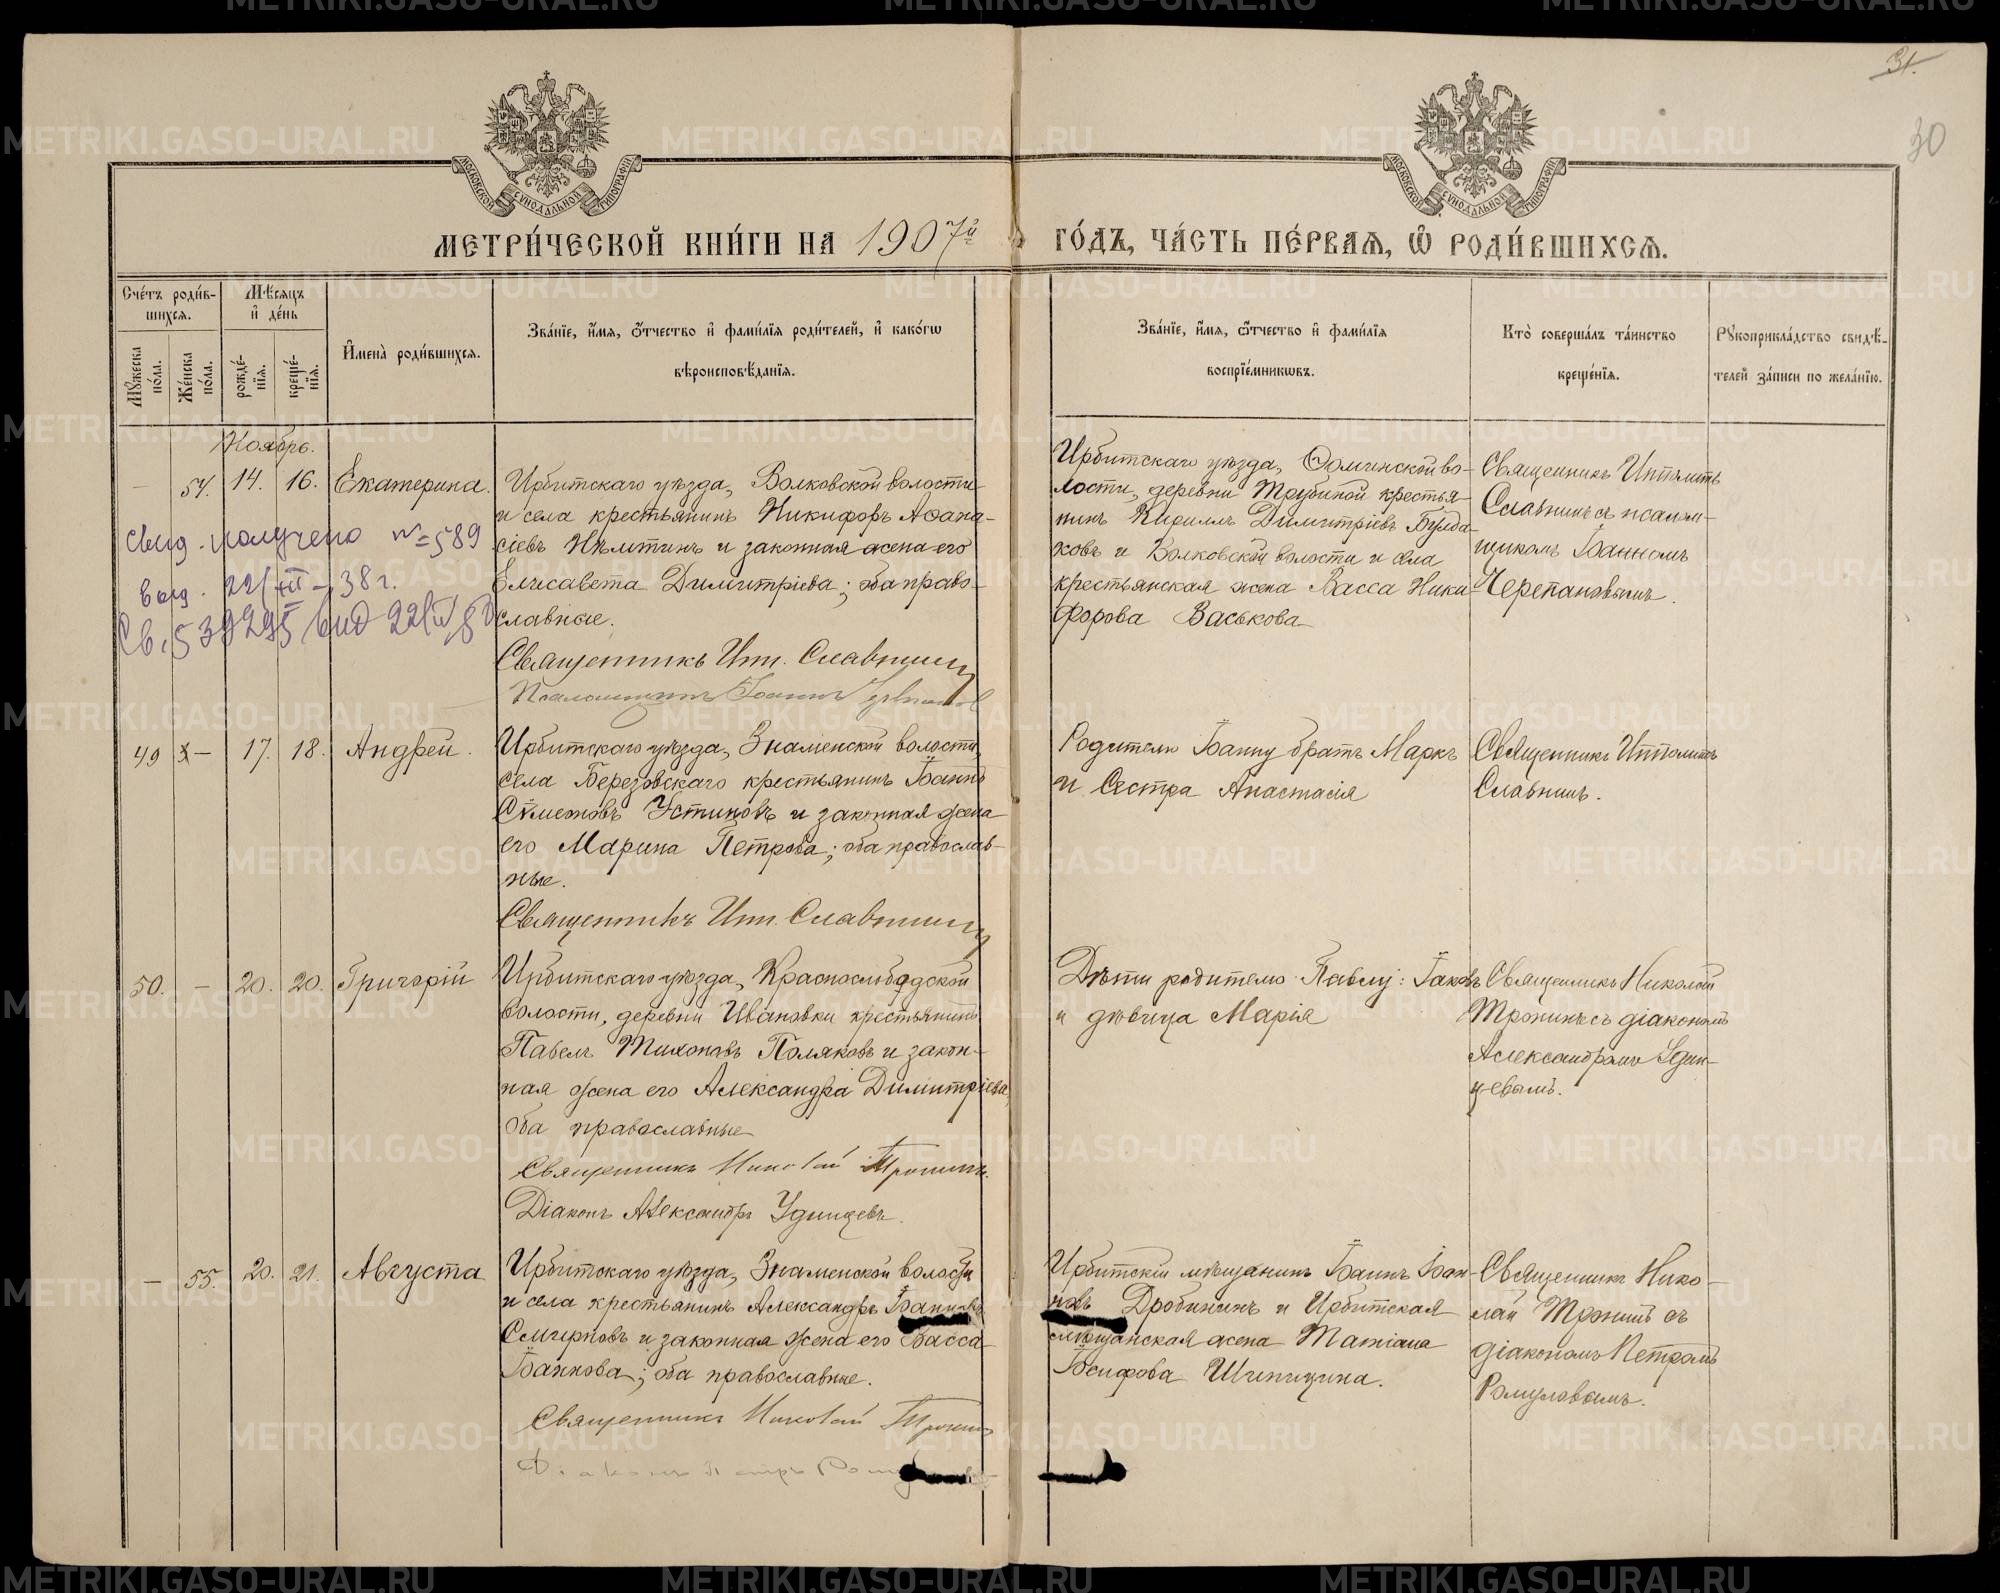 31.
30
МОСКОВСКОЙ СѴНОДАЛЬНОЙ ТИПОГРАФІИ
МОСКОВСКОЙ СѴНОДАЛЬНОЙ ТИПОГРАФІИ
МЕТРИ́ЧЕСКОЙ КНИ́ГИ НА 1907й ГО́ДЪ, ЧА́СТЬ ПЕ́РВАЯ, Ѽ РОДИ́ВШИХСЯ.
Сче́тъ роди́в-
шихся.
Мѣ́сяцъ
и҆ де́нь
Мꙋ́жеска по́ла.
Же́нска по́ла.
рожде́-
нїя.
креще́-
нїя.
И҆мена̀ роди́вшихся.
Зва́нїе, и҆́мя, ѻ҆́тчество и҆ фами́лїя роди́телей, и҆ како́гѡ
вѣроисповѣ́данїя.
Зва́нїе, и҆́мя, ѻ҆́тчество и҆ фами́лїя
воспрїе́мникѡвъ.
Кто̀ соверша́лъ та́инство
креще́нїя.
Рꙋкоприкла́дство свидѣ́-
телей за́писи по жела́нїю.
Ноябрь.
— 54. 14. 16. Екатерина.
Ирбитскаго уѣзда, Волковской волости
и села крестьянинъ Никифоръ Афана-
сіевъ Нѣмтинъ и законная жена его
Елисавета Димитріева; оба право-
славные.
Священникъ Ип. Славнинъ
Псаломщикъ Іоаннъ Черепановъ
Ирбитскаго уѣзда, Фоминской во-
лости, деревни Трубиной крестья-
нинъ Кириллъ Димитріевъ Булда-
ковъ и Волковской волости и села
крестьянская жена Васса Ники-
форова Васькова
Священникъ Ипполитъ
Славнинъ съ псалом-
щикомъ Іоанномъ
Черепановымъ.
свид. получено № 589
выд. 22/XII-38 г.
Св. 539295 выд 22/IV 80
49 — 17. 18. Андрей.
Ирбитскаго уѣзда, Знаменской волости
села Березовскаго крестьянинъ Іоаннъ
Сѵмеоновъ Устиновъ и законная жена
его Марина Петрова; оба православ-
ные.
Священникъ Ип. Славнинъ
Родителю Іоанну братъ Маркъ
и Сестра Анастасія
Священникъ Ипполитъ
Славнинъ.
50. — 20. 20. Григорій
Ирбитскаго уѣзда, Краснослободской
волости, деревни Ивановки крестьянинъ
Павелъ Тихоновъ Поляковъ и закон-
ная жена его Александра Димитріева,
оба православные
Священникъ Николай Тронинъ.
Діаконъ Александръ Удинцевъ.
Дѣти родителю Павлу: Іаковъ
и дѣвица Марія
Священникъ Николай
Тронинъ съ діакономъ
Александромъ Удин-
цевымъ.
— 55. 20. 21. Августа
Ирбитскаго уѣзда, Знаменской волости
и села крестьянинъ Александръ Іоанновъ
Смирновъ и законная жена его Васса
Іоаннова; оба православные.
Священникъ Николай Тронинъ
Діаконъ Петръ
Ирбитскій мѣщанинъ Іоаннъ Іоан-
новъ Дробининъ и Ирбитская
мѣщанская жена Татіана
Іосифова Шипицина.
Священникъ Нико-
лай Тронинъ съ
діакономъ Петромъ
Ромуловымъ.
METRIKI.GASO-URAL.RU